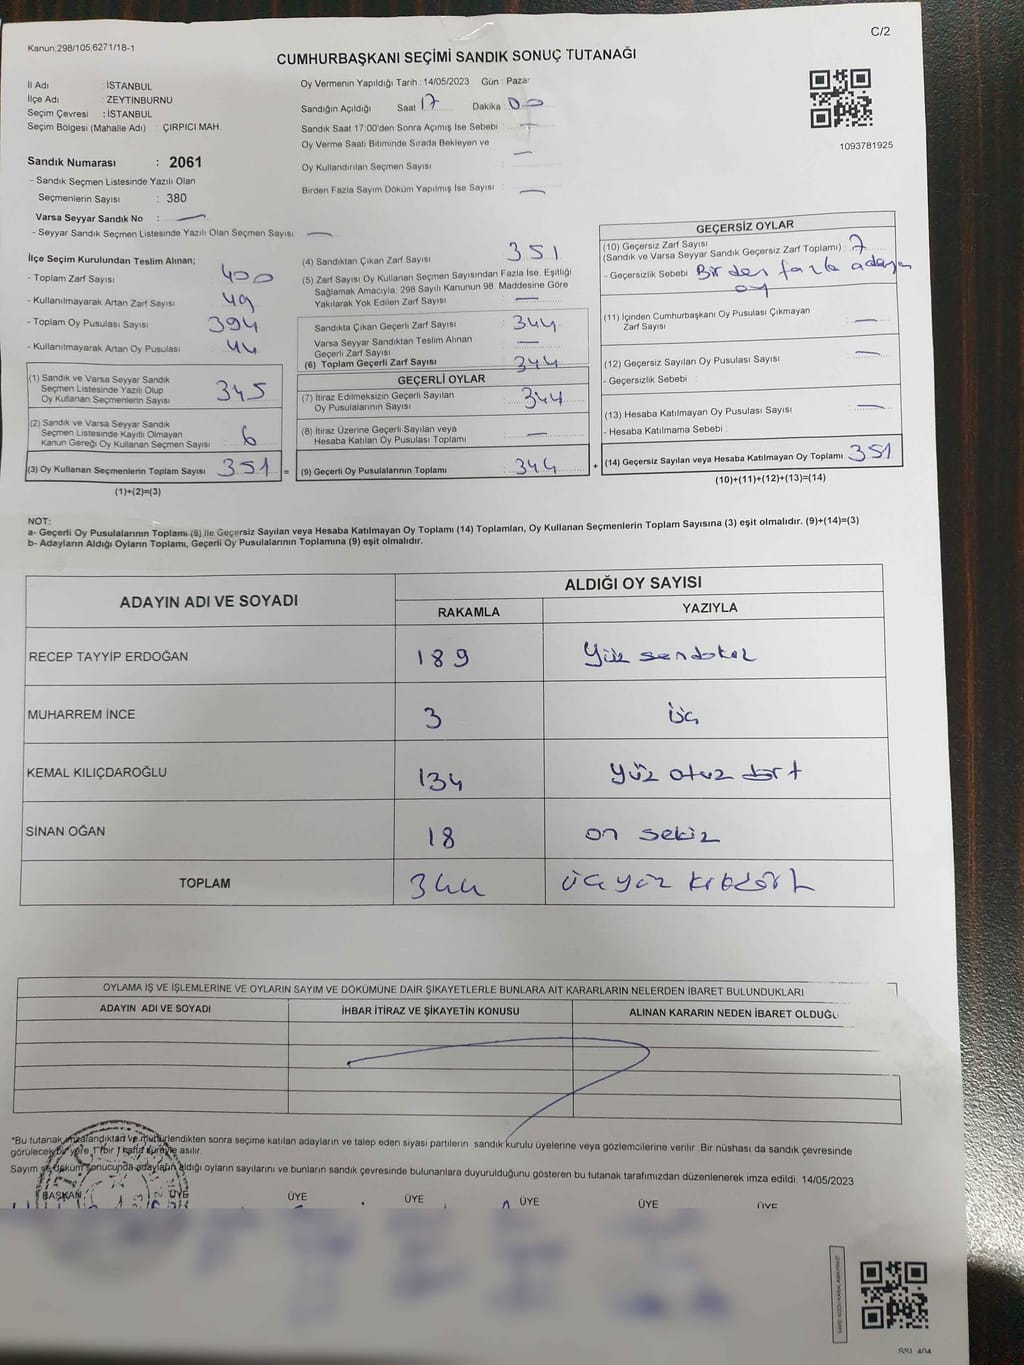 C/2
Kanun;298/105;6271/18-1
CUMHURBAŞKANI SEÇİMİ SANDIK SONUÇ TUTANAĞI
İl Adı : İSTANBUL
İlçe Adı : ZEYTİNBURNU
Seçim Çevresi : İSTANBUL
Seçim Bölgesi (Mahalle Adı) : ÇIRPICI MAH.
Sandık Numarası : 2061
- Sandık Seçmen Listesinde Yazılı Olan
Seçmenlerin Sayısı : 380
Varsa Seyyar Sandık No : —
- Seyyar Sandık Seçmen Listesinde Yazılı Olan Seçmen Sayısı : —
Oy Vermenin Yapıldığı Tarih : 14/05/2023 Gün : Pazar
Sandığın Açıldığı Saat 17 Dakika 00
Sandık Saat 17:00'den Sonra Açımış İse Sebebi : —
Oy Verme Saati Bitiminde Sırada Bekleyen ve
Oy Kullandırılan Seçmen Sayısı : —
Birden Fazla Sayım Döküm Yapılmış İse Sayısı : —
1093781925
İlçe Seçim Kurulundan Teslim Alınan;
- Toplam Zarf Sayısı : 400
- Kullanılmayarak Artan Zarf Sayısı : 49
- Toplam Oy Pusulası Sayısı : 394
- Kullanılmayarak Artan Oy Pusulası : 44
(1) Sandık ve Varsa Seyyar Sandık
Seçmen Listesinde Yazılı Olup
Oy Kullanan Seçmenlerin Sayısı : 345
(2) Sandık ve Varsa Seyyar Sandık
Seçmen Listesinde Kayıtlı Olmayan
Kanun Gereği Oy Kullanan Seçmen Sayısı : 6
(3) Oy Kullanan Seçmenlerin Toplam Sayısı : 351 =
(1)+(2)=(3)
(4) Sandıktan Çıkan Zarf Sayısı : 351
(5) Zarf Sayısı Oy Kullanan Seçmen Sayısından Fazla İse, Eşitliği
Sağlamak Amacıyla, 298 Sayılı Kanunun 98. Maddesine Göre
Yakılarak Yok Edilen Zarf Sayısı : —
Sandıkta Çıkan Geçerli Zarf Sayısı : 344
Varsa Seyyar Sandıktan Teslim Alınan
Geçerli Zarf Sayısı : —
(6) Toplam Geçerli Zarf Sayısı : 344
GEÇERLİ OYLAR
(7) İtiraz Edilmeksizin Geçerli Sayılan
Oy Pusulalarının Sayısı : 344
(8) İtiraz Üzerine Geçerli Sayılan veya
Hesaba Katılan Oy Pusulası Toplamı : —
(9) Geçerli Oy Pusulalarının Toplamı : 344 +
GEÇERSİZ OYLAR
(10) Geçersiz Zarf Sayısı
(Sandık ve Varsa Seyyar Sandık Geçersiz Zarf Toplamı) : 7
- Geçersizlik Sebebi : Birden fazla adaya
oy
(11) İçinden Cumhurbaşkanı Oy Pusulası Çıkmayan
Zarf Sayısı : —
(12) Geçersiz Sayılan Oy Pusulası Sayısı : —
- Geçersizlik Sebebi :
(13) Hesaba Katılmayan Oy Pusulası Sayısı : —
- Hesaba Katılmama Sebebi :
(14) Geçersiz Sayılan veya Hesaba Katılmayan Oy Toplamı : 351
(10)+(11)+(12)+(13)=(14)
NOT:
a- Geçerli Oy Pusulalarının Toplamı (9) ile Geçersiz Sayılan veya Hesaba Katılmayan Oy Toplamı (14) Toplamları, Oy Kullanan Seçmenlerin Toplam Sayısına (3) eşit olmalıdır. (9)+(14)=(3)
b- Adayların Aldığı Oyların Toplamı, Geçerli Oy Pusulalarının Toplamına (9) eşit olmalıdır.
ADAYIN ADI VE SOYADI ALDIĞI OY SAYISI
RAKAMLA YAZIYLA
RECEP TAYYİP ERDOĞAN 189 Yüz sendokuz
MUHARREM İNCE 3 üç
KEMAL KILIÇDAROĞLU 134 Yüz otuz dört
SİNAN OĞAN 18 on sekiz
TOPLAM 344 üçyüz kırkdört
OYLAMA İŞ VE İŞLEMLERİNE VE OYLARIN SAYIM VE DÖKÜMÜNE DAİR ŞİKAYETLERLE BUNLARA AİT KARARLARIN NELERDEN İBARET BULUNDUKLARI
ADAYIN ADI VE SOYADI İHBAR İTİRAZ VE ŞİKAYETİN KONUSU ALINAN KARARIN NEDEN İBARET OLDUĞU
*Bu tutanak imzalandıktan ve mühürlendikten sonra seçime katılan adayların ve talep eden siyasi partilerin sandık kurulu üyelerine veya gözlemcilerine verilir. Bir nüshası da sandık çevresinde
görülecek bir yere 1 (bir) hafta süreyle asılır.
Sayım ve döküm sonucunda adayların aldığı oyların sayılarını ve bunların sandık çevresinde bulunanlara duyurulduğunu gösteren bu tutanak tarafımızdan düzenlenerek imza edildi. 14/05/2023
BAŞKAN ÜYE ÜYE ÜYE ÜYE ÜYE ÜYE